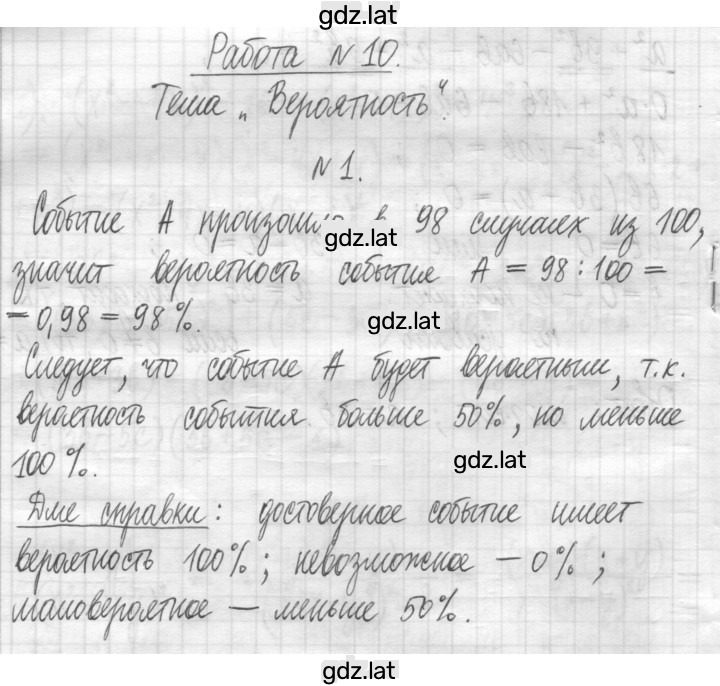 gdz.lat
Работа №10.
Тема „Вероятность".
№1.
Событие А произошло в 98 случаях из 100,
gdz.lat
значит вероятность события А = 98 : 100 =
= 0,98 = 98%.
gdz.lat
Следует, что событие А будет вероятным, т.к.
вероятность события больше 50%, но меньше
100%.
gdz.lat
Для справки: достоверное событие имеет
вероятность 100%; невозможное — 0%;
маловероятное — меньше 50%.
gdz.lat